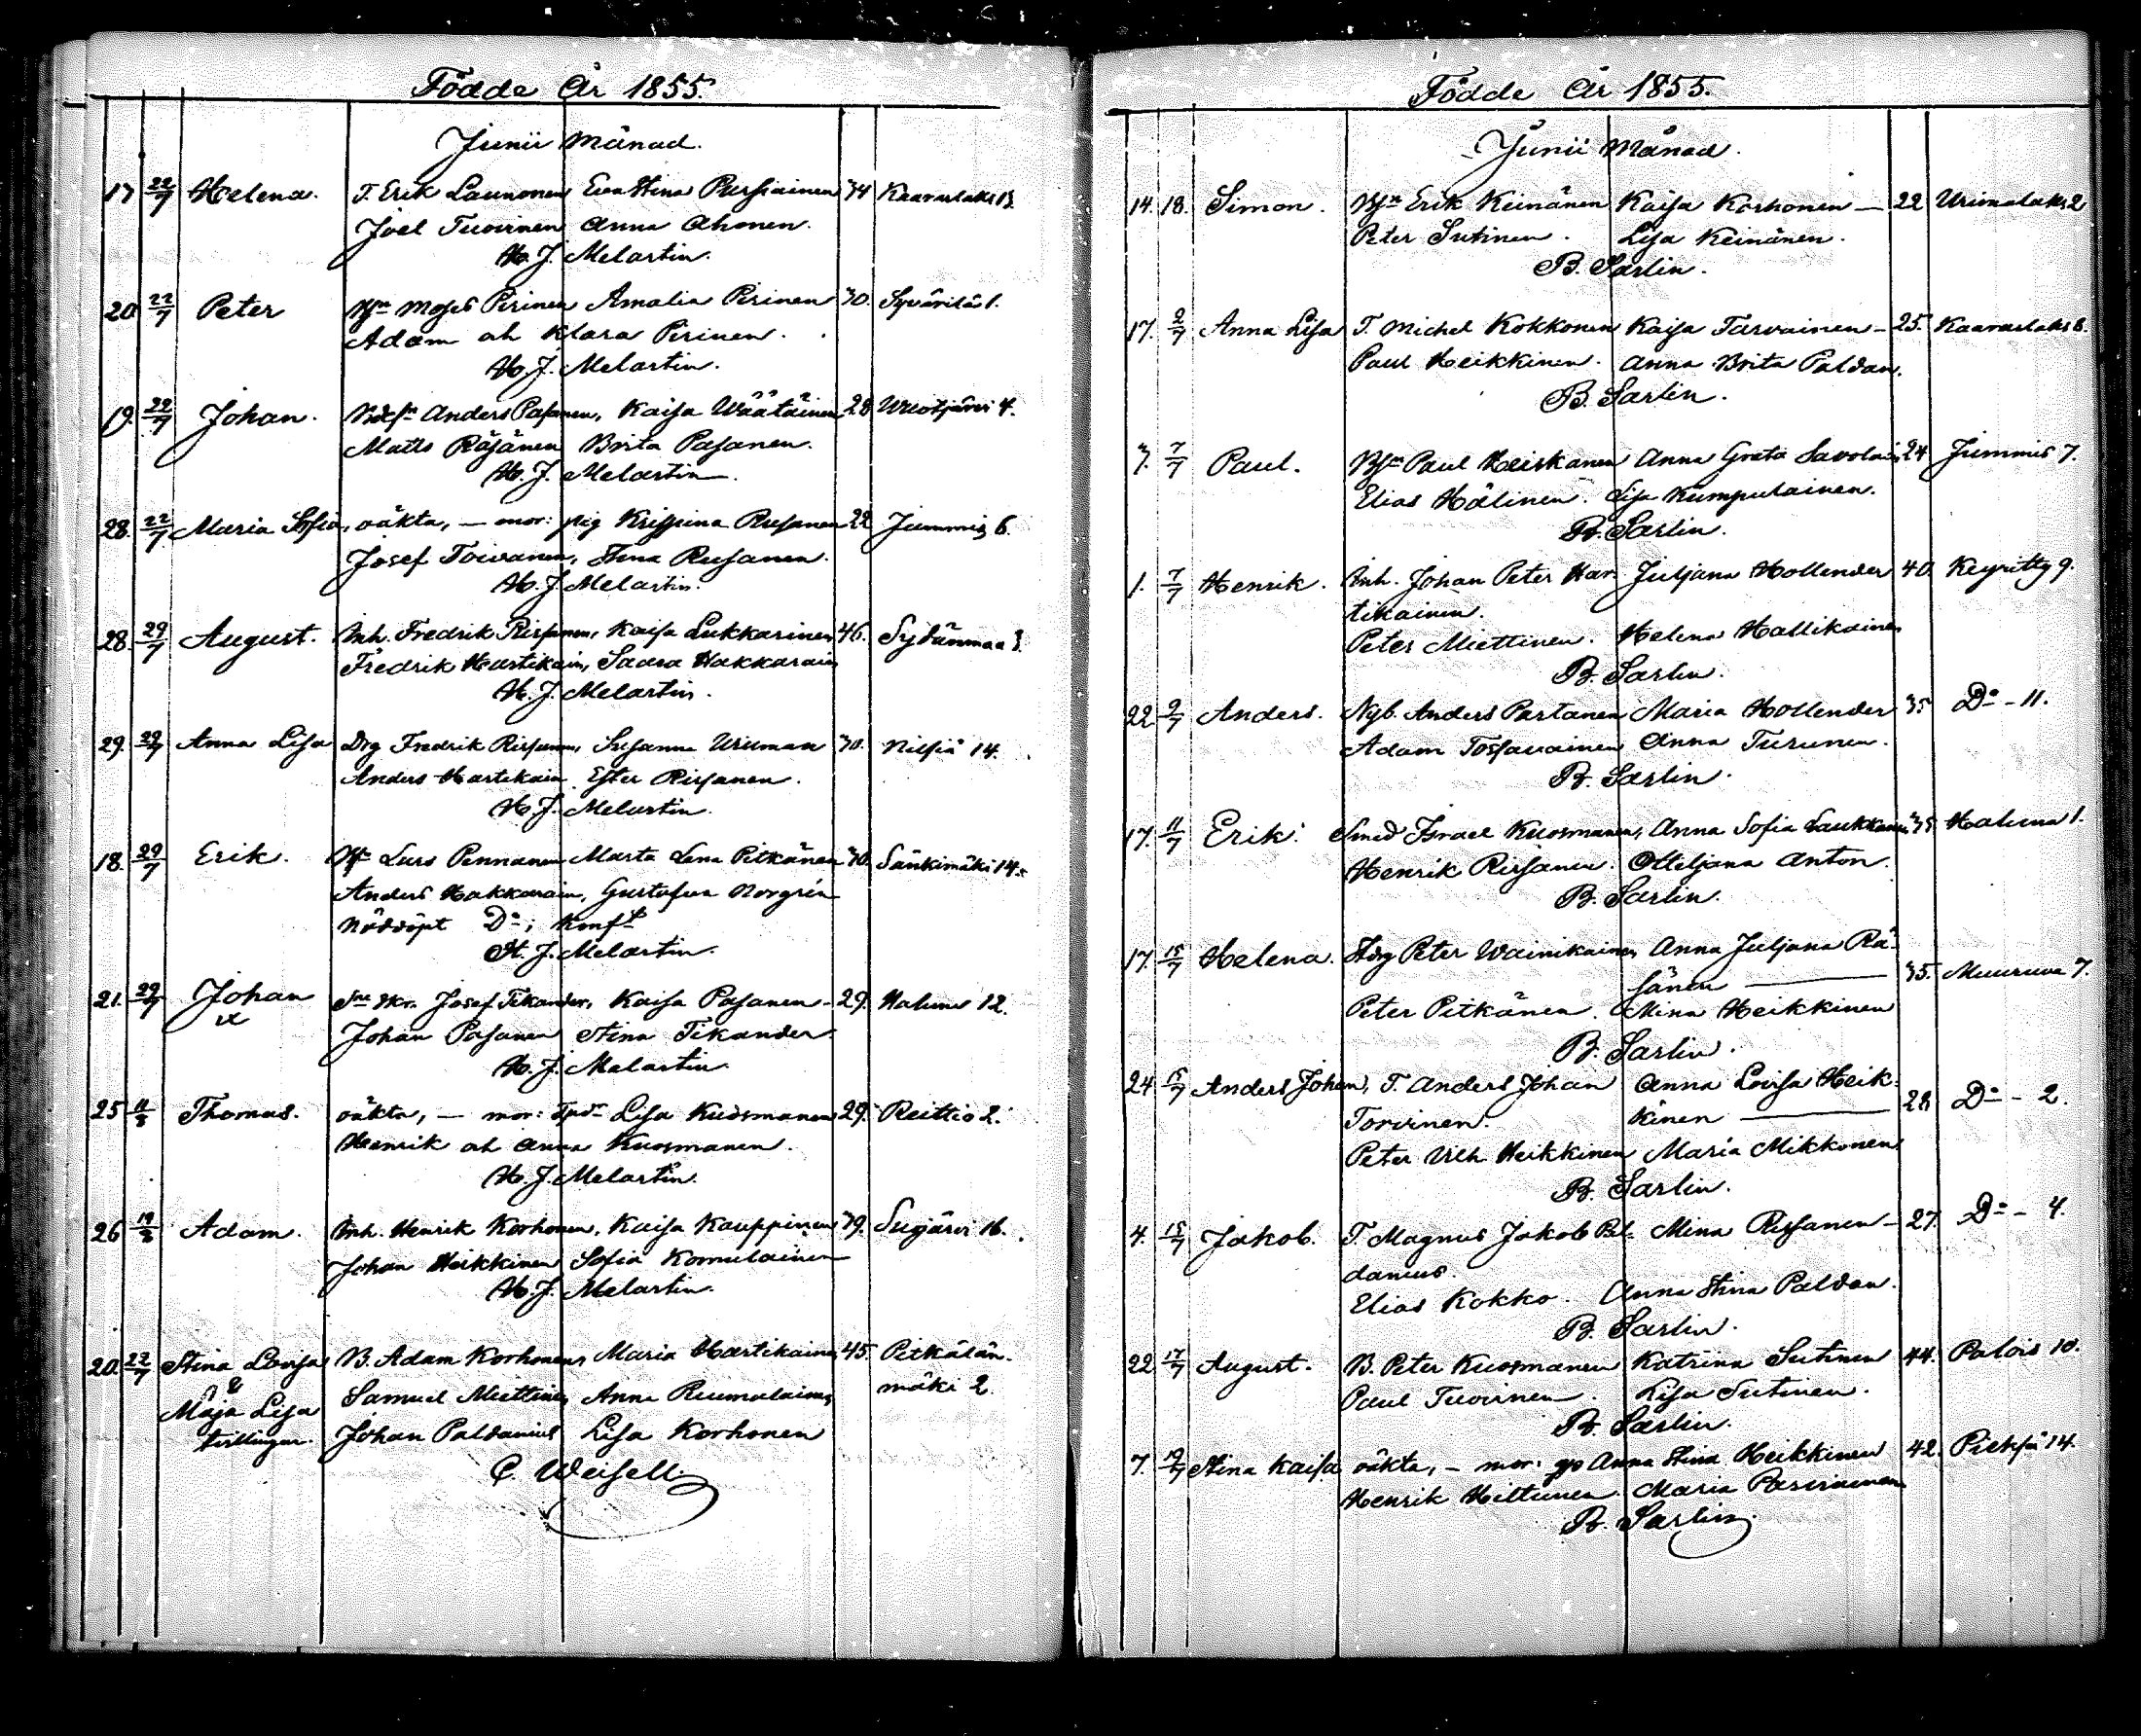 Födde År 1855.
Junii Månad.
17 22/7 Helena. T. Erik Launonen Eva Stina Pursiainen 34 Kaavinlaks 13.
Joel Tuovinen Anna Ahonen.
H. J. Melartin.
20 22/7 Peter Bsn Moses Pirinen Amalia Pirinen 30. Syvärilä 1.
Adam och Klara Pirinen.
H. J. Melartin.
19. 22/7 Johan. Anders Pasanen, Kaisa Wäätäinen 28 Wuotjärvi 4.
Matts Räsänen Brita Pasanen.
H. J. Melartin.
28. 22/7 Maria Sofia, oäkta, – mor: pig Kristina Rusanen 22 Jummis 6.
Josef Toivanen, Stina Rusanen.
H. J. Melartin.
28. 29/7 August. Inh. Fredrik Rissanen, Kaisa Lukkarinen 46. Sydänmaa 3.
Fredrik Hartikain, Saara Hakkarain
H. J. Melartin.
29. 29/7 Anna Lisa Drg Fredrik Rissanen, Susanna 30. Nilsiä 14.
Anders Hartikain Ester Rissanen.
H. J. Melartin.
18. 29/7 Erik. Lars Pennanen Marta Lena Pitkänen 30. Sänkimäki 14.
Anders Hakkarain, Gustafva Norgrén
Nöddöpt Do; Konft
H. J. Melartin.
21. 29/7 Johan Josef Tikander, Kaisa Pasanen – 29. Haluna 12.
x Johan Pasanen Stina Tikander.
H. J. Melartin
25 11/8 Thomas. oäkta, – mor: Lisa Kuosmanen 29. Reittiö 2.
Henrik och Anna Kuosmanen.
H. J. Melartin.
26 19/8 Adam. Inh. Henrik Korhonen, Kaisa Kauppinen 39. Sujärvi 16.
Johan Heikkinen Sofia Komulainen
H. J. Melartin.
20. 22/7 Stina Lovisa B. Adam Korhonen, Maria Hartikainen 45. Pitkälän-
& Samuel Miettinen Anna Ruumulainen mäki 2.
Maja Lisa
tvillingar. Johan Paldanius Lisa Korhonen
C. Weisell.
Födde År 1855.
Junii Månad.
14. 18. Simon. Bsn Erik Keinänen Kaisa Korhonen – 22 Urimolaks 2
Peter Sutinen. Lisa Keinänen.
B. Sarlin.
17. 2/7 Anna Lisa T. Michel Kokkonen Kaisa Tarvainen – 25. Kaavinlaks 6.
Paul Heikkinen. Anna Brita Paldan.
B. Sarlin.
3. 7/7 Paul. Bsn Paul Heiskanen Anna Greta Savolain 24 Jummis 7.
Elias Hälinen. Lisa Kumpulainen.
B. Sarlin.
1. 7/7 Henrik. Inh. Johan Peter Har- Juljana Hollender 40. Keyritty 9.
tikainen.
Peter Miettinen. Helena Hallikainen
B. Sarlin.
22 9/7 Anders. Nyb. Anders Partanen Maria Hollender 35 Do – 11.
Adam Tossavainen Anna Turunen.
B. Sarlin.
17. 11/7 Erik. Smed Israel Kuosmanen, Anna Sofia Laukkanen 35 Haluna 1.
Henrik Rissanen. Otteljana Anton.
B. Sarlin.
17. 15/7 Helena. Peter Wainikainen Anna Juljana Rä-
sänen – 35. Muuruvesi 7.
Peter Pitkänen. Mina Heikkinen
B. Sarlin.
24 15/7 Anders Johan, T. Anders Johan Anna Lovisa Heik-
Torvinen. kinen – 28 Do – 2.
Peter Vilh Heikkinen Maria Mikkonen
B. Sarlin.
4. 15/7 Jakob. T. Magnus Jakob Pal- Mina Rissanen – 27. Do – 4.
danius.
Elias Kokko. Anna Stina Paldan.
B. Sarlin.
22 17/7 August. B. Peter Kuosmanen Katrina Sutinen 44. Palois 10.
Paul Tuovinen. Lisa Sutinen.
B. Sarlin.
7. 19/7 Stina Kaisa oäkta, – mor: Anna Stina Heikkinen 42. Pieksä 14.
Henrik Hiltunen. Maria Parviainen
B. Sarlin.